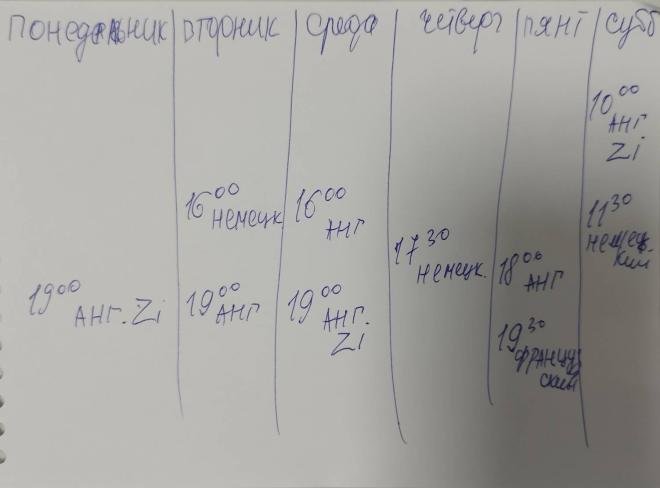 понедельник вторник среда четверг пянт субб
10 00
анг
Zi
16 00 немецк 16 00 анг 11 30
немец-
кий
17 30
немецк. 18 00
анг
19 00 анг. Zi 19 00 анг 19 00
анг.
Zi
19 30
француз
ский